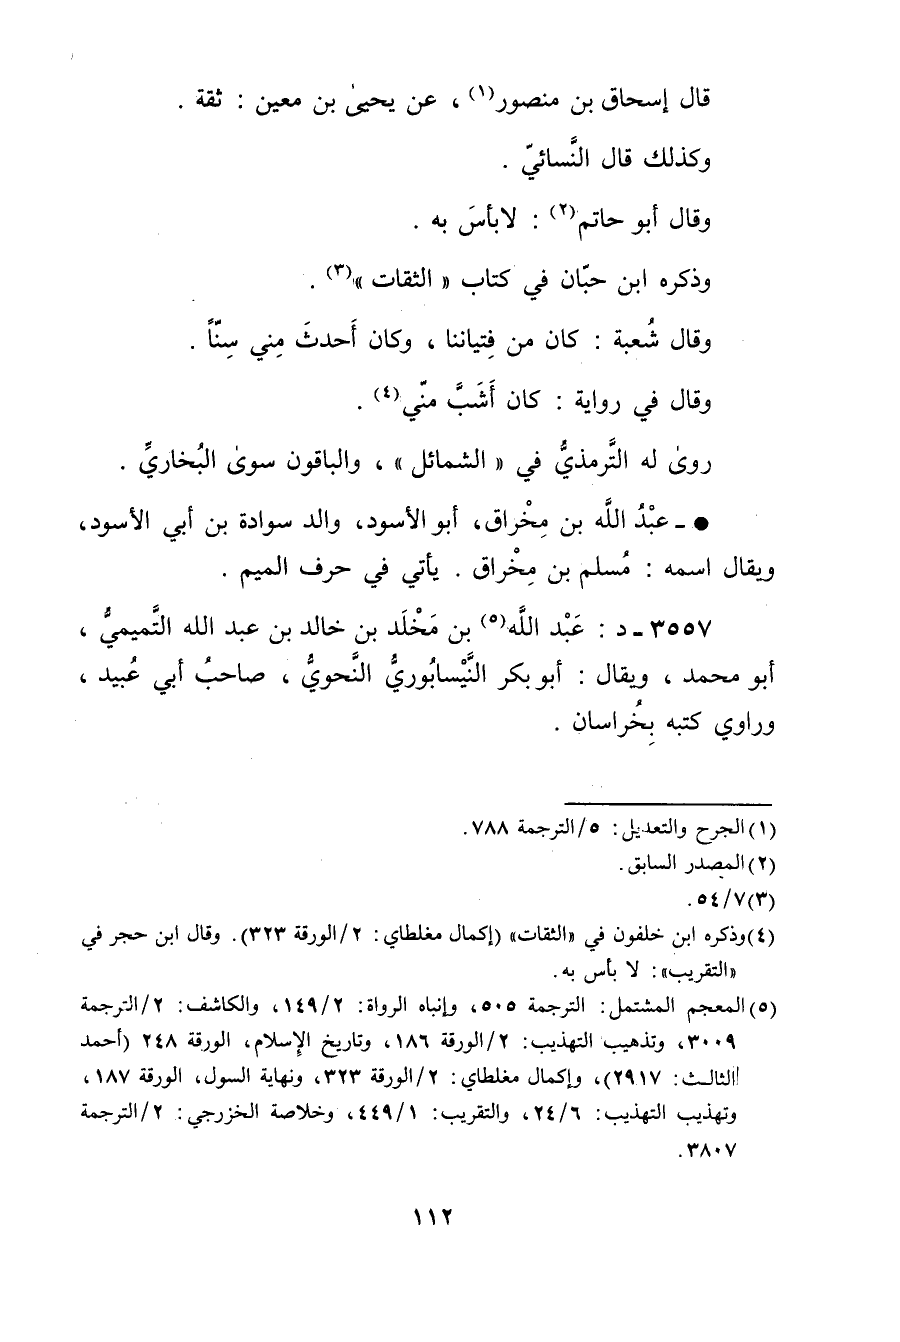 قال إسحاق بن منصور(١) ، عن يحيىٰ بن معين : ثقة .
وكذلك قال النَّسائيّ .
وقال أبو حاتم(٢) : لابأسَ به .
وذكره ابن حبّان في كتاب « الثقات »(٣) .
وقال شُعبة : كان من فِتياننا ، وكان أَحدثَ مِني سِنّاً .
وقال في رواية : كان أَشَبَّ منّي(٤) .
روىٰ له التَّرمذيُّ في « الشمائل » ، والباقون سوىٰ البُخاريِّ .
● ـ عبْدُ اللَّه بن مِخْراق، أبو الأسود، والد سوادة بن أبي الأسود،
ويقال اسمه : مُسلم بن مِخْراق . يأتي في حرف الميم .
٣٥٥٧ ـ د : عَبْد اللَّه(٥) بن مَخْلَد بن خالد بن عبد الله التَّميميُّ ،
أبو محمد ، ويقال : أبو بكر النَّيْسابُوريُّ النَّحويُّ ، صاحبُ أبي عُبيد ،
وراوي كتبه بِخُراسان .
(١) الجرح والتعديل: ٥/الترجمة ٧٨٨.
(٢) المصدر السابق.
(٣) ٥٤/٧.
(٤) وذكره ابن خلفون في «الثقات» (إكمال مغلطاي: ٢/الورقة ٣٢٣). وقال ابن حجر في
«التقريب»: لا بأس به.
(٥) المعجم المشتمل: الترجمة ٥٠٥، وإنباه الرواة: ١٤٩/٢، والكاشف: ٢/الترجمة
٣٠٠٩، وتذهيب التهذيب: ٢/الورقة ١٨٦، وتاريخ الإسلام، الورقة ٢٤٨ (أحمد
الثالث: ٢٩١٧)، وإكمال مغلطاي: ٢/الورقة ٣٢٣، ونهاية السول، الورقة ١٨٧،
وتهذيب التهذيب: ٢٤/٦، والتقريب: ٤٤٩/١، وخلاصة الخزرجي: ٢/الترجمة
٣٨٠٧.
١١٢